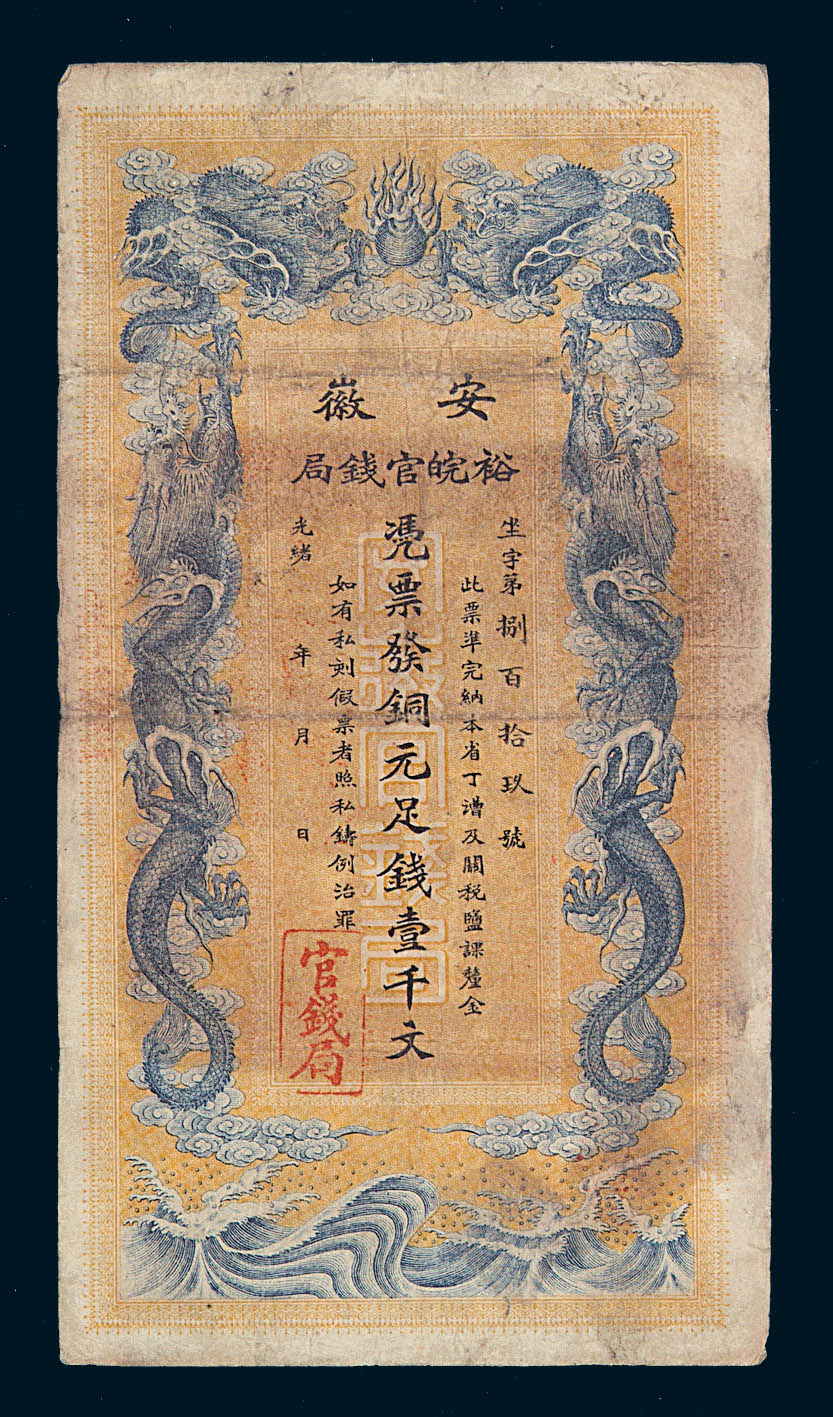 安徽
裕皖官錢局
坐字第捌百拾玖號
此票準完納本省丁漕及關稅鹽課釐金
憑票發銅元足錢壹千文
如有私刻假票者照私鑄例治罪
光緒 年 月 日
官錢局